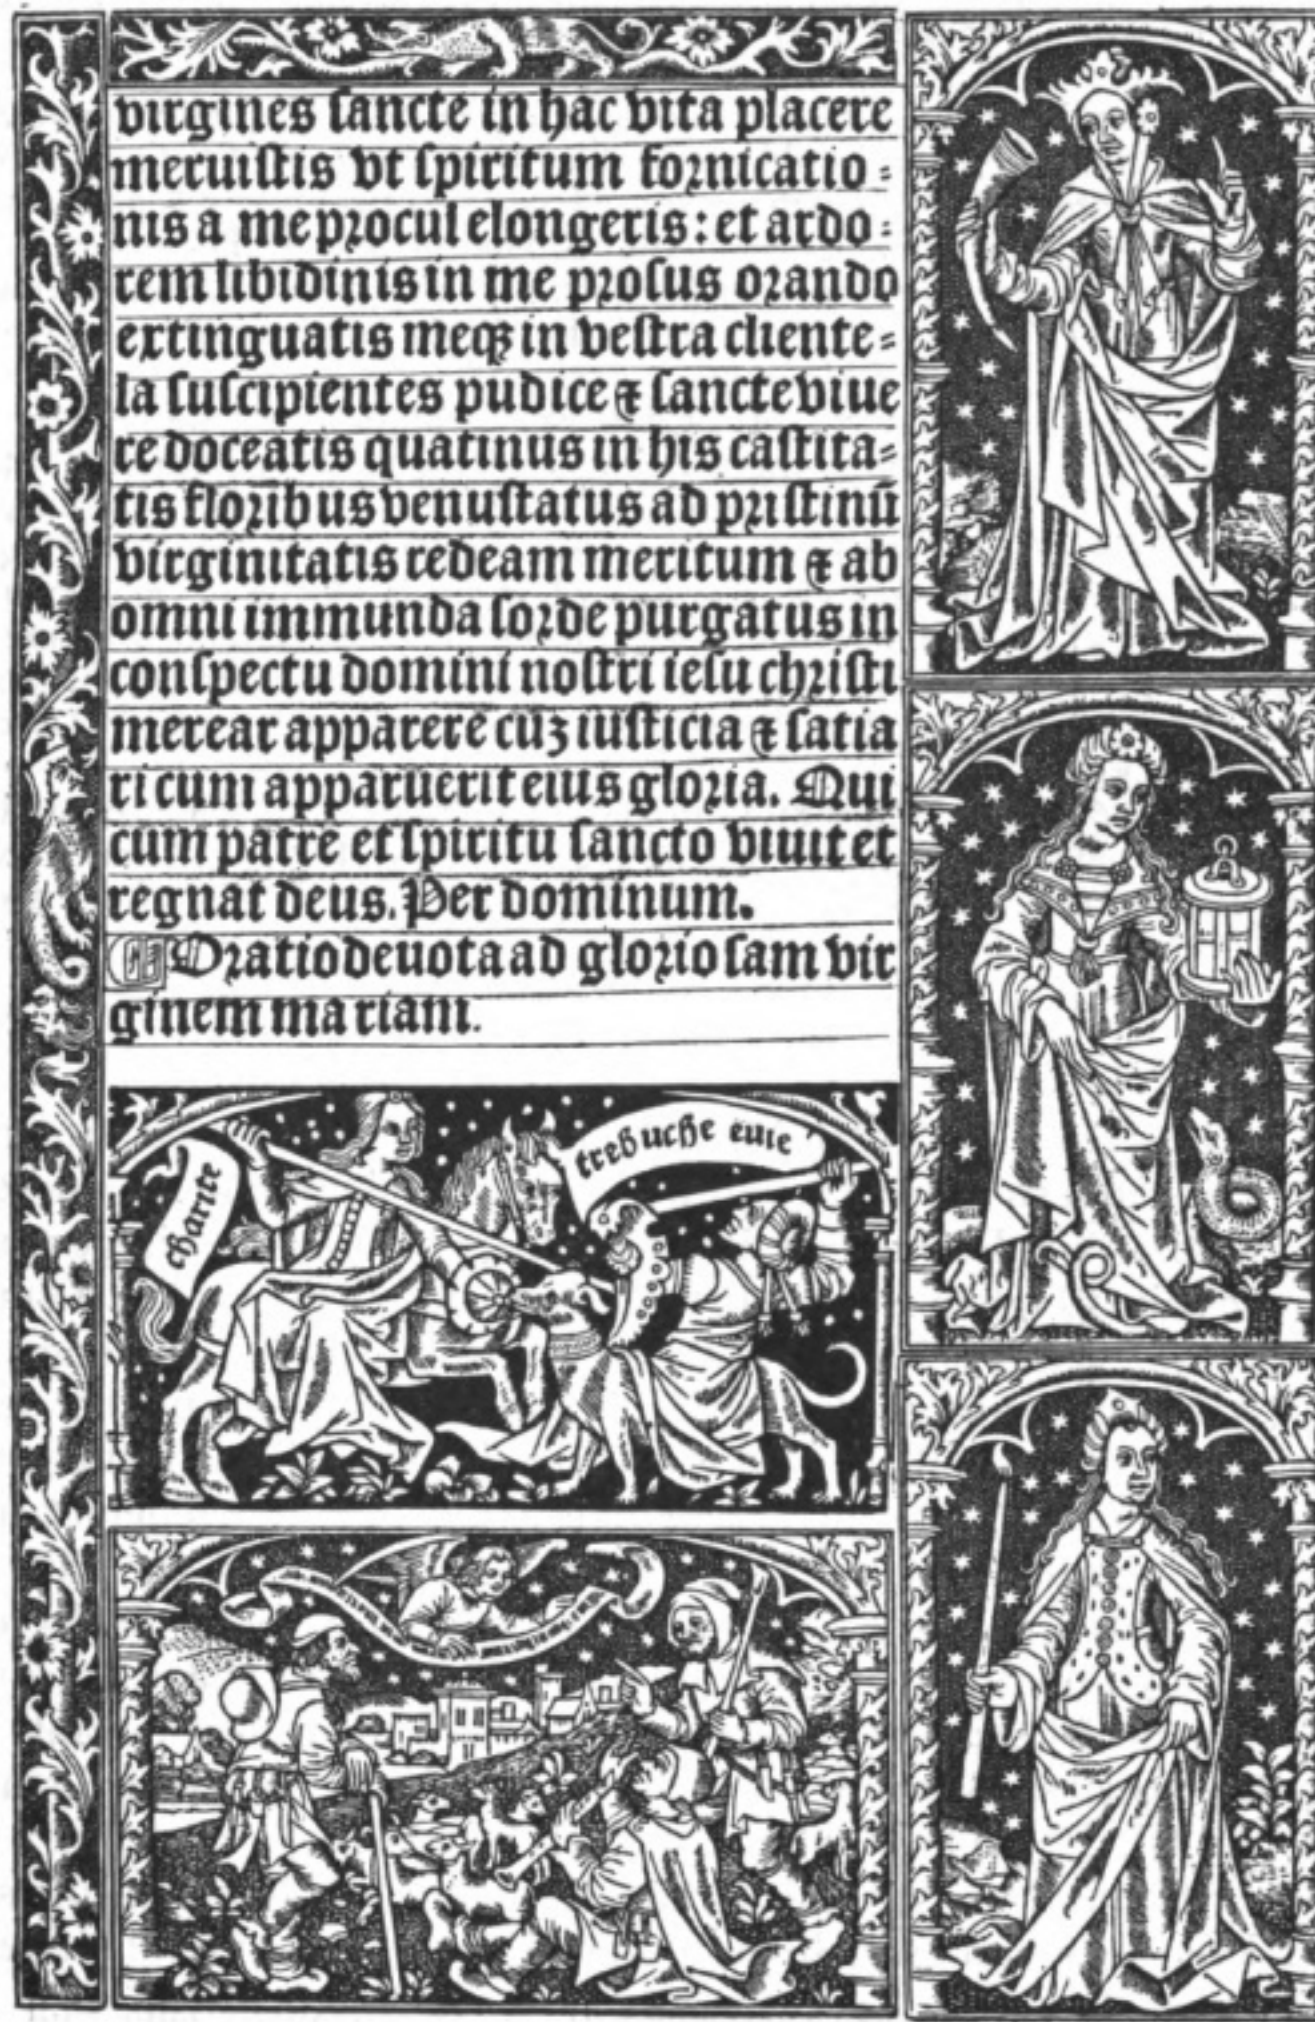 virgines sancte in hac vita placere
meruistis vt spiritum fornicatio=
nis a me procul elongeris: et ardo=
rem libidinis in me prosus orando
extinguatis meqꝫ in vestra cliente=
la suscipientes pudice ⁊ sancte viue
re doceatis quatinus in his castita=
tis floribus venustatus ad pristinū
virginitatis redeam meritum ⁊ ab
omni immunda sorde purgatus in
conspectu domini nostri iesu christi
merear apparere cuꝫ iusticia ⁊ satia
ri cum apparuerit eius gloria. Qui
cum patre et spiritu sancto viuit et
regnat deus. Per dominum.
Oratio deuota ad gloriosam vir
ginem mariam.
charite
trebuche